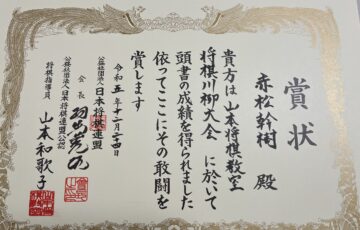 賞状
赤松幹樹 殿
貴方は山本将棋教室
将棋川柳大会に於いて
頭書の成績を得られました
依ってここにその敢闘を
賞します
令和五年十二月二十四日
公益社団法人日本将棋連盟
会長
公益社団法人日本将棋連盟公認
将棋指導員 山本和歌子